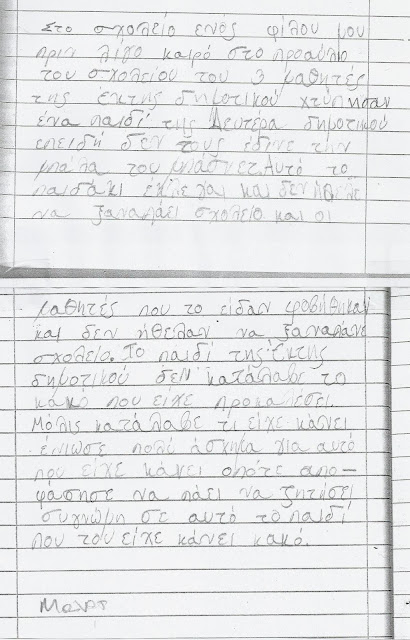 Στο σχολείο ενός φίλου μου
πριν λίγο καιρό στο προαύλιο
του σχολείου του 3 μαθητές
της έκτης δημοτικού χτύπησαν
ένα παιδί της Δευτέρα δημοτικού
επειδή δεν τους έδινε την
μπάλα του μπάσκετ. Αυτό το
παιδάκι έκλαιγε και δεν ήθελε
να ξαναπάει σχολείο και οι
μαθητές που το είδαν φοβήθηκαν
και δεν ήθελαν να ξαναπάνε
σχολείο. Το παιδί της Έκτης
δημοτικού δεν κατάλαβε το
κακό που είχε προκαλέσει.
Μόλις κατάλαβε τι είχε κάνει
ένιωσε πολύ άσχημα για αυτό
που είχε κάνει οπότε απο-
φάσησε να πάει να ζητήσει
συγνώμη σε αυτό το παιδί
που του είχε κάνει κακό.